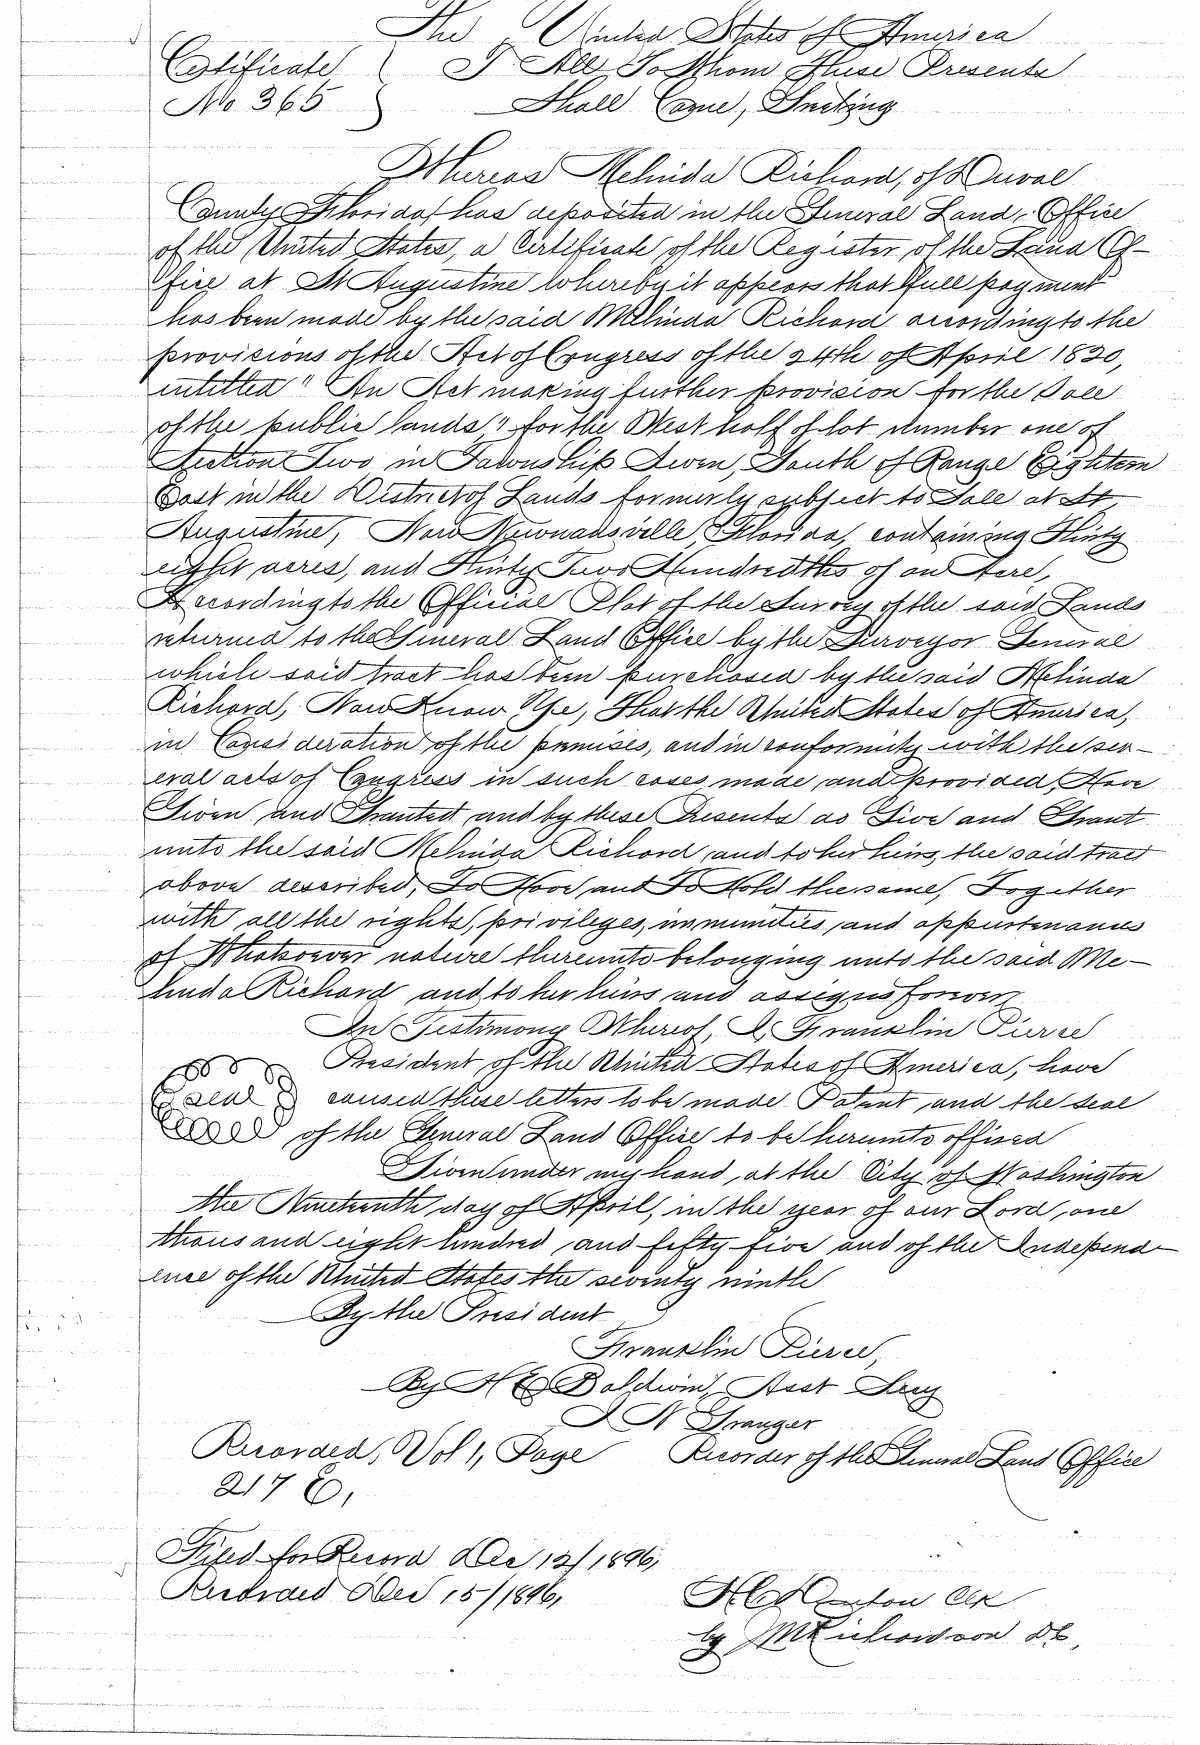 The United States of America
Certificate To All To Whom These Presents
No 365 Shall Come, Greeting
Whereas Melinda Richard, of Duval
County Florida, has deposited in the General Land, Office
of the United States, a Certificate of the Register of the Land Of-
fice at St Augustine whereby it appears that full payment
has been made by the said Melinda Richard according to the
provisions of the Act of Congress of the 24th of April 1820,
intitled "An Act making further provision for the Sale
of the public lands," for the West half of lot number one of
Section Two, in Township Seven, South of Range Eighteen
East in the District of Lands formerly subject to Sale at St,
Augustine, Now Newnansville Florida, containing Thirty
eight acres, and Thirty Two Hundredths of an Acre,
According to the Official Plat of the Survey of the said Lands
returned to the General Land Office by the Surveyor General
which said tract has been purchased by the said Melinda
Richard, Now Know Ye, That the United States of America,
in Consideration of the premises, and in conformity with the sev-
eral acts of Congress in such cases made and provided, Have
Given and Granted and by these Presents do Give and Grant
unto the said Melinda Richard and to her heirs, the said tract
above described, To Have and To Hold the same, Together
with all the rights, privileges, immunities, and appurtenances
of Whatsoever nature thereunto belonging unto the said Me-
linda Richard and to her heirs and assigns forever
In Testimony Whereof, I, Franklin Pierce
President of the United States of America, have
Seal caused these letters to be made Patent, and the seal
of the General Land Office to be hereunto affixed
Given under my hand, at the City of Washington
the Nineteenth day of April, in the year of our Lord, one
thousand eight hundred and fifty five and of the Independ-
ence of the United States the seventy ninth
By the President
Franklin Pierce,
By H E Baldwin, Asst Secy
I N Granger
Recorded, Vol 1, Page Recorder of the General Land Office
217 E,
Filed for Record Dec 12/1896,
Recorded Dec 15/1896,
Clk
by M Richardson DC,